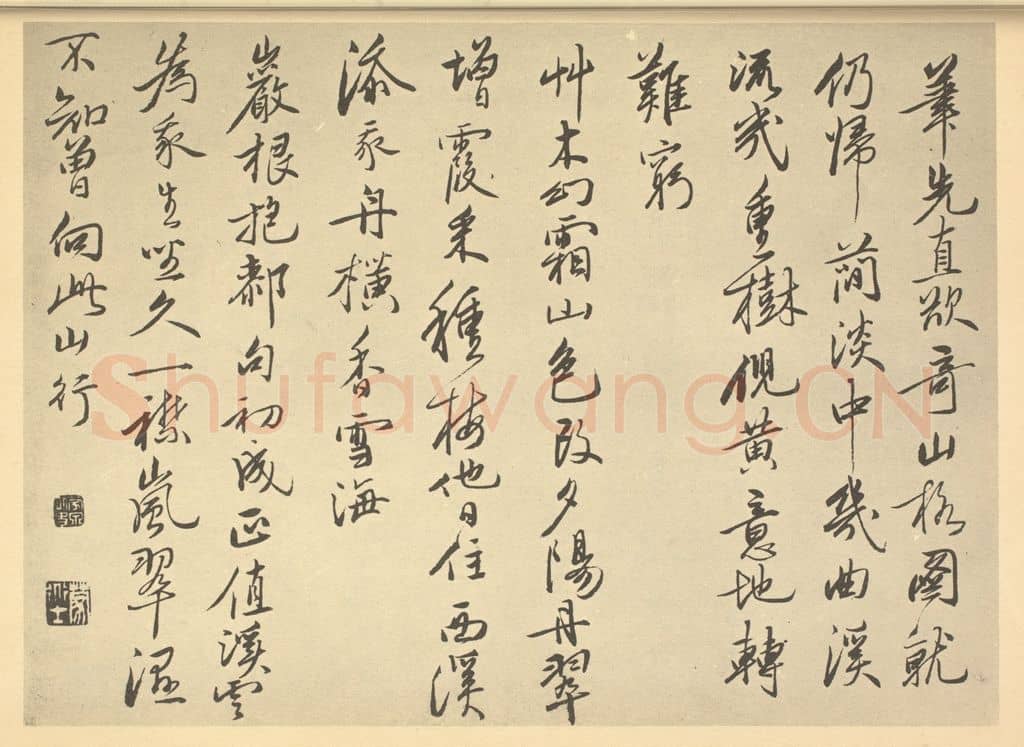 筆先直欲奇山格圖就
仍歸簡淡中幾曲溪
流幾重樹倪黃意地轉
難窮
艸木幻霜山色改夕陽丹翠
增霞采種梅他日住西溪
添我舟橫香雪海
巖根抱厀句初成正值溪雲
為我生坐久一襟嵐翠濕
不知曾向此山行
Shufawang.CN